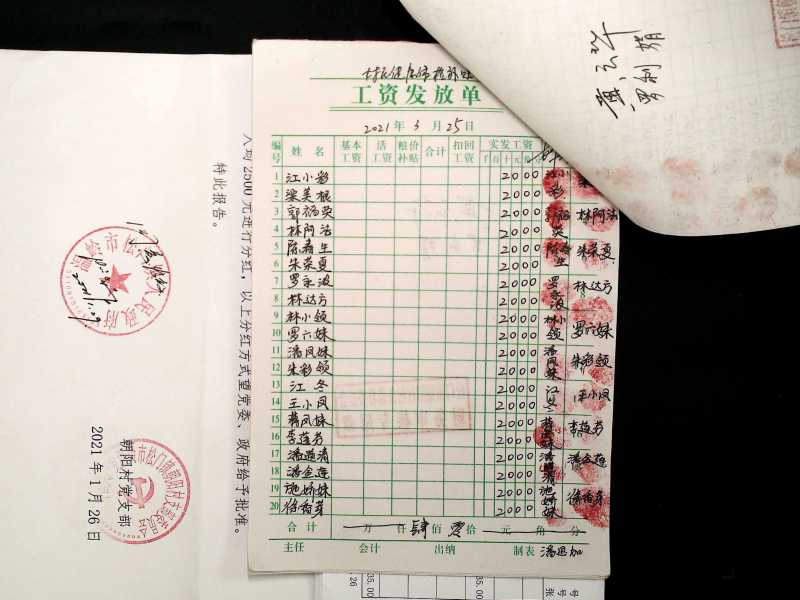 工资发放单
2021年 3月 25日
编号 姓名 基本工资 活工资 粮价补贴 合计 扣回工资 实发工资
千 百 十 元 角 分
1 江小彩 2000 江小彩
2 梁美根 2000
3 郭福荧 2000 郭福荧
4 林阿法 2000 林阿法
5 陈春生 2000 陈春生
6 朱荣夏 2000 朱荣夏
7 罗永波 2000 罗永波
8 林达方 2000 林达方
9 林小领 2000 林小领
10 罗六妹 2000 罗六妹
11 潘凤妹 2000 潘凤妹
12 朱彩领 2000 朱彩领
13 江冬 2000 江冬
14 王小凤 2000 王小凤
15 蒋凤妹 2000
16 李莲芳 2000 李莲芳
17 2000
18 潘金莲 2000 潘金莲
19 施娇妹 2000 施娇妹
20 徐香芽 2000 徐香芽
合计 万 仟 肆 佰 零 拾 元 角 分
主任 会计 出纳 制表
入均2500元进行分红，以上分红方式望党委、政府给予批准。
特此报告。
朝阳村党支部
2021年1月26日